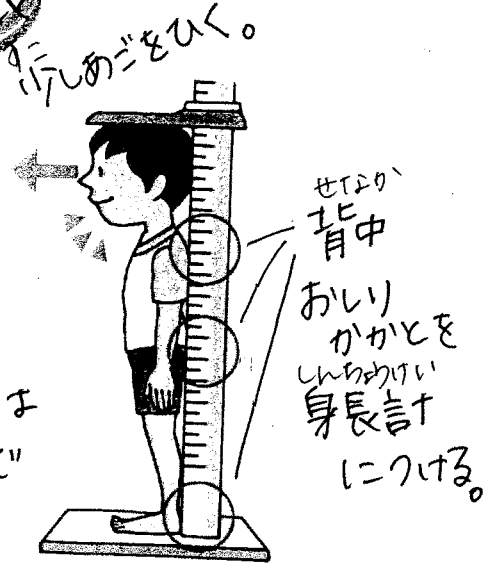 少しあごをひく。
せなか
背中
おしり
かかとを
しんちょうけい
身長計
につける。
は